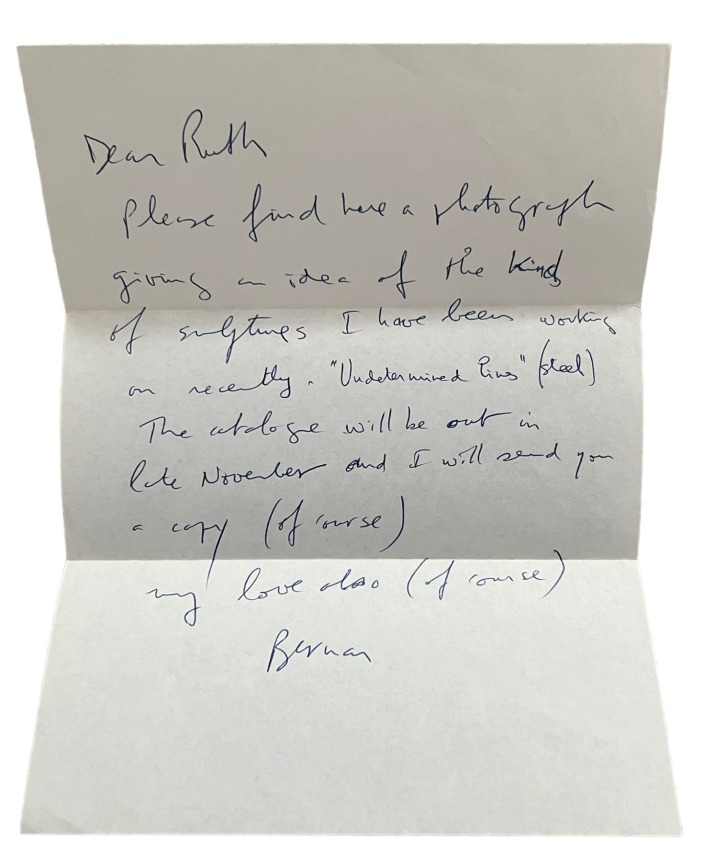 Dear Ruth
Please find here a photograph
giving an idea of the kind
of sculptures I have been working
on recently. "Undetermined Lines" (steel)
The catalogue will be out in
late November and I will send you
a copy (of course)
my love also (of course)
Bernar